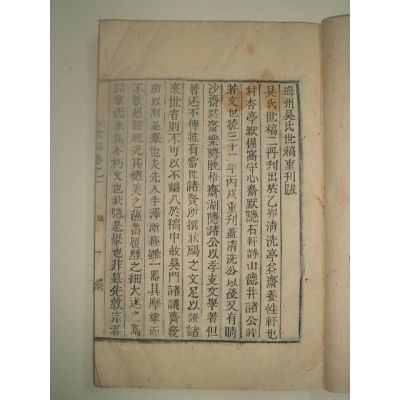 海州吳氏世稿重刊跋
吳氏世稿二冊刊出於乙卯清洗亭翁齋養性軒也
村杏亭默悝窩守心齋默隱石軒詩山德井諸公詩
若文也後三十一年丙戌重刊蓋清洗公以後又有睛
沙齋默齋樂晦悟齋湖隱諸公以孝友文學著但
著述不傳雖有當世諸賢所撰狀碣之文足以誇諸
來世者則不可以不編入於稿中故吳門諸議齊發
所以有是舉也夫先人手澤所經雖一器具摩挲而
不敢忽諸況其德美之蘊蓄履歷之細大述之為
銘章而永為不朽文也哉隱是舉也非慕先敦宗者